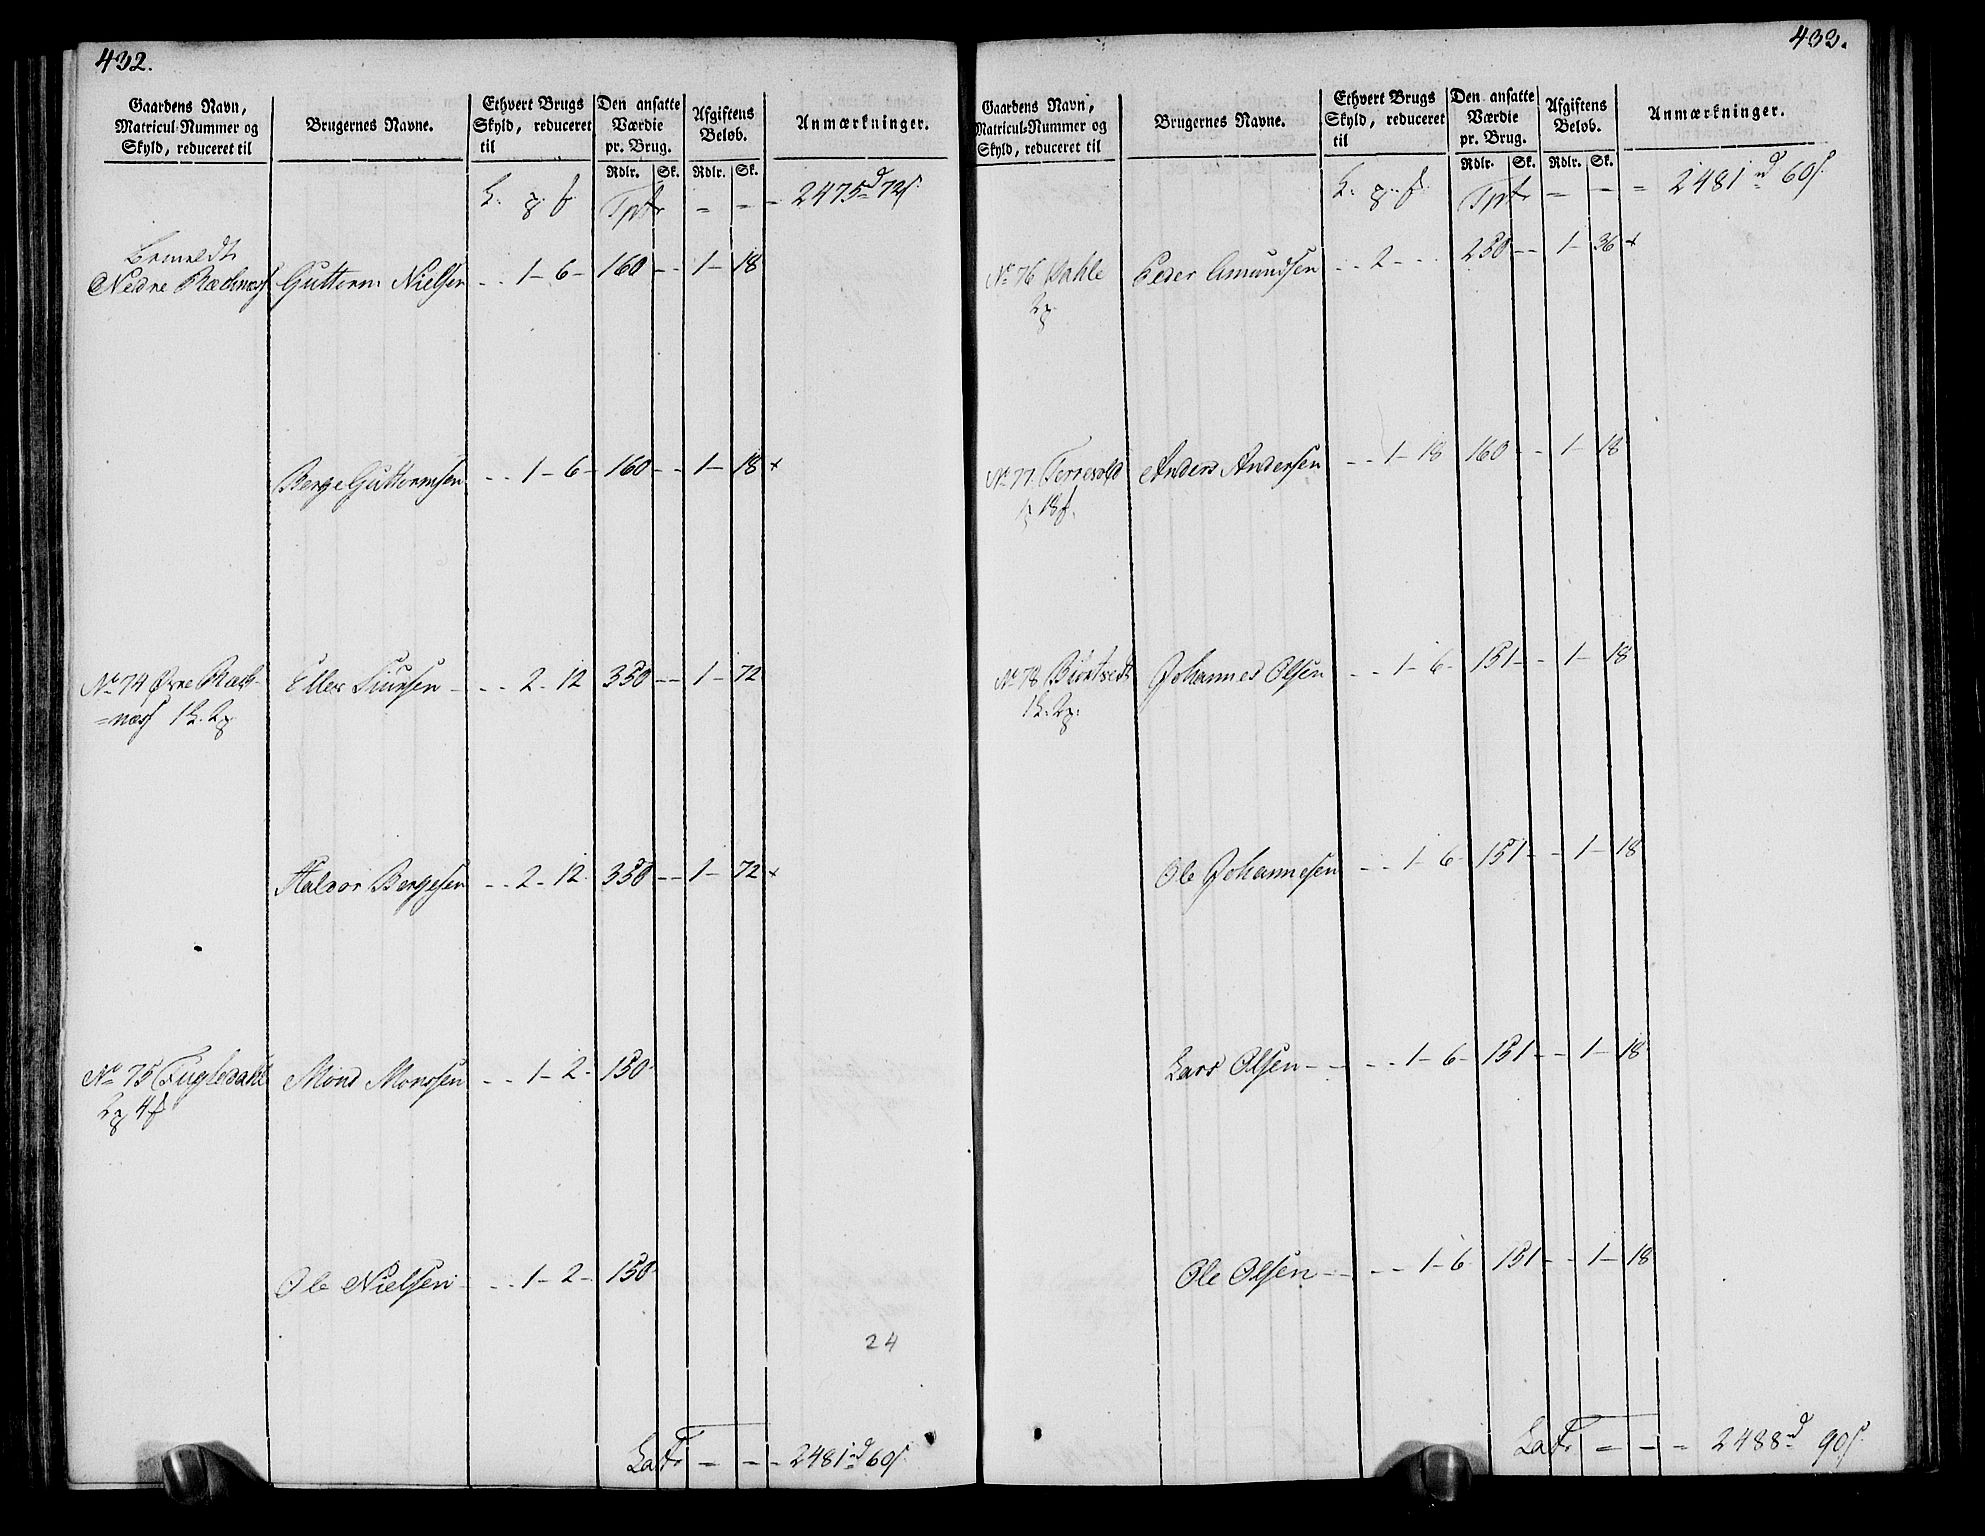 432.
Gaardens Navn, Matricul-Nummer og Skyld, reduceret til | Brugernes Navne. | Ethvert Brugs Skyld, reduceret til | Den ansatte Værdie pr. Brug. | Afgiftens Beløb. | Anmærkninger.
Rdlr. | Sk. | Rdlr. | Sk.
Tptr - - - 2475 d 72 s
Nedre Guttorm Nielsen - - 1 - 6 - 160 - - 1 - 18
Berge Guttormsen - - 1 - 6 - 160 - - 1 - 18 x
No 74 Øvre Elles Siursen - - - 2 - 12 350 - - 1 - 72
Halvor Bergesen - - 2 - 12 350 - - 1 - 72 x
No 75 Fugledahl Mons Monssen - - 1 - 2 - 150
Ole Nielsen - - - 1 - 2 - 150
24
Latr - - - 2481 d 60 s
433.
Gaardens Navn, Matricul-Nummer og Skyld, reduceret til | Brugernes Navne. | Ethvert Brugs Skyld, reduceret til | Den ansatte Værdie pr. Brug. | Afgiftens Beløb. | Anmærkninger.
Rdlr. | Sk. | Rdlr. | Sk.
Tptr = - = 2481 d 60 s
No 76 Dahle Peder Amundsen - - 2 - - 250 - - 1 - 36 x
No 77 Anders Andersen - - 1 - 18 160 - - 1 - 18
18
No 78 Johannes Olsen - - 1 - 6 - 151 - - 1 - 18
Ole Johannesen - - 1 - 6 - 151 - - 1 - 18
Lars Olsen - - - - 1 - 6 - 151 - - 1 - 18
Ole Olsen - - - - 1 - 6 151 - - 1 - 18
Latr = - = 2488 d 90 s